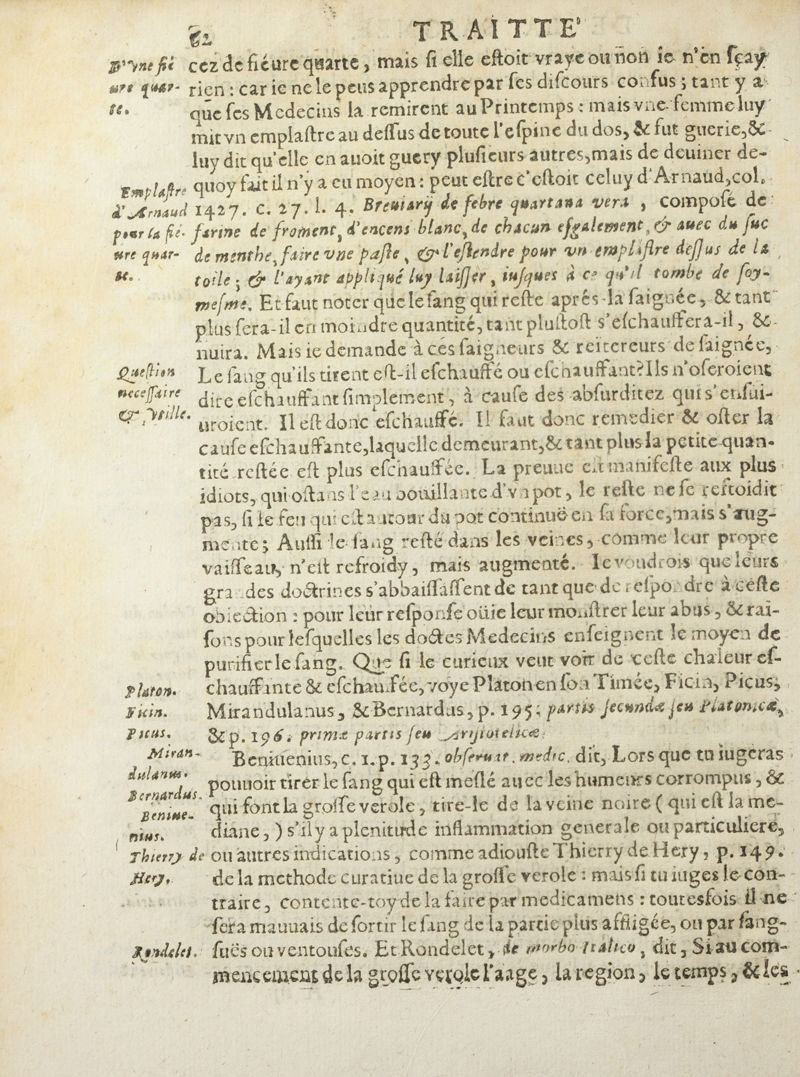 62
TRAITTE'
D'vne fié
ure quar-
te.
cez de fiéure quarte, mais ſi elle eſtoit vraye ou non ie n'en ſçay
rien : car ie ne le peus apprendre par ſes diſcours confus ; tant y a
que ſes Medecins la remirent au Printemps : mais vne femme luy
mit vn emplaſtre au deſſus de toute l'eſpine du dos, & fut guerie, &
luy dit qu'elle en auoit guery pluſieurs autres, mais de deuiner de-
Emplaſtre
d'Arnaud
pour la fié-
ure quar-
te.
quoy fait il n'y a eu moyen : peut eſtre c'eſtoit celuy d'Arnaud, col.
1427. c. 27. l. 4. Breuiarij de febre quartana vera , compoſé de
farine de froment, d'encens blanc, de chacun eſgalement, & auec du ſuc
de menthe, faire vne paſte, & l'eſtendre pour vn emplaſtre deſſus de la
toile ; & l'ayant appliqué luy laiſſer, iuſques à ce qu'il tombe de ſoy-
meſme. Et faut noter que le ſang qui reſte aprés la ſaignée, & tant
plus ſera-il en moindre quantité, tant pluſtoſt s'eſchauffera-il, &
nuira. Mais ie demande à ces ſaigneurs & reitereurs de ſaignée,
Queſtion
neceſſaire
& vtille.
Le ſang qu'ils tirent eſt-il eſchauffé ou eſchauffant? Ils n'oſeroient
dire eſchauffant ſimplement, à cauſe des abſurditez qui s'enſui-
uroient. Il eſt donc eſchauffé. Il faut donc remedier & oſter la
cauſe eſchauffante, laquelle demeurant, & tant plus la petite quan-
tité reſtée eſt plus eſchauffée. La preuue eſt manifeſte aux plus
idiots, qui oſtans l'eau bouillante d'vn pot, le reſte ne ſe refroidit
pas, ſi le feu qui eſt autour du pot continuë en ſa force, mais s'aug-
mente ; Auſſi le ſang reſté dans les veines, comme leur propre
vaiſſeau, n'eſt refroidy, mais augmenté. Ie voudrois que leurs
grandes doctrines s'abbaiſſaſſent de tant que de reſpondre à ceſte
obiection : pour leur reſponſe oüie leur monſtrer leur abus, & rai-
ſons pour leſquelles les doctes Medecins enſeignent le moyen de
purifier le ſang. Que ſi le curieux veut voir de ceſte chaleur eſ-
Platon.
Ficin.
Picus.
Miran-
dulanus.
Bernardus.
Beniue-
nius.
chauffante & eſchauffée, voye Platon en ſon Timée, Ficin, Picus,
Mirandulanus, & Bernardus, p. 195. partis ſecundæ ſeu Platonicæ,
& p. 196. primæ partis ſeu Ariſtotelicæ.
Beniuenius, c. 1. p. 133. obſeruat. medic. dit, Lors que tu iugeras
pouuoir tirer le ſang qui eſt meſlé auec les humeurs corrompus, &
qui font la groſſe verole, tire-le de la veine noire ( qui eſt la me-
diane, ) s'il y a plenitude inflammation generale ou particuliere,
Thierry de
Hery.
ou autres indications, comme adiouſte Thierry de Hery, p. 149.
de la methode curatiue de la groſſe verole : mais ſi tu iuges le con-
traire, contente-toy de la faire par medicamens : toutesfois il ne
ſera mauuais de ſortir le ſang de la partie plus affligée, ou par ſang-
Rondelet.
ſuës ou ventouſes. Et Rondelet, de morbo Italico, dit, Si au com-
mencement de la groſſe verole l'aage, la region, le temps, & les